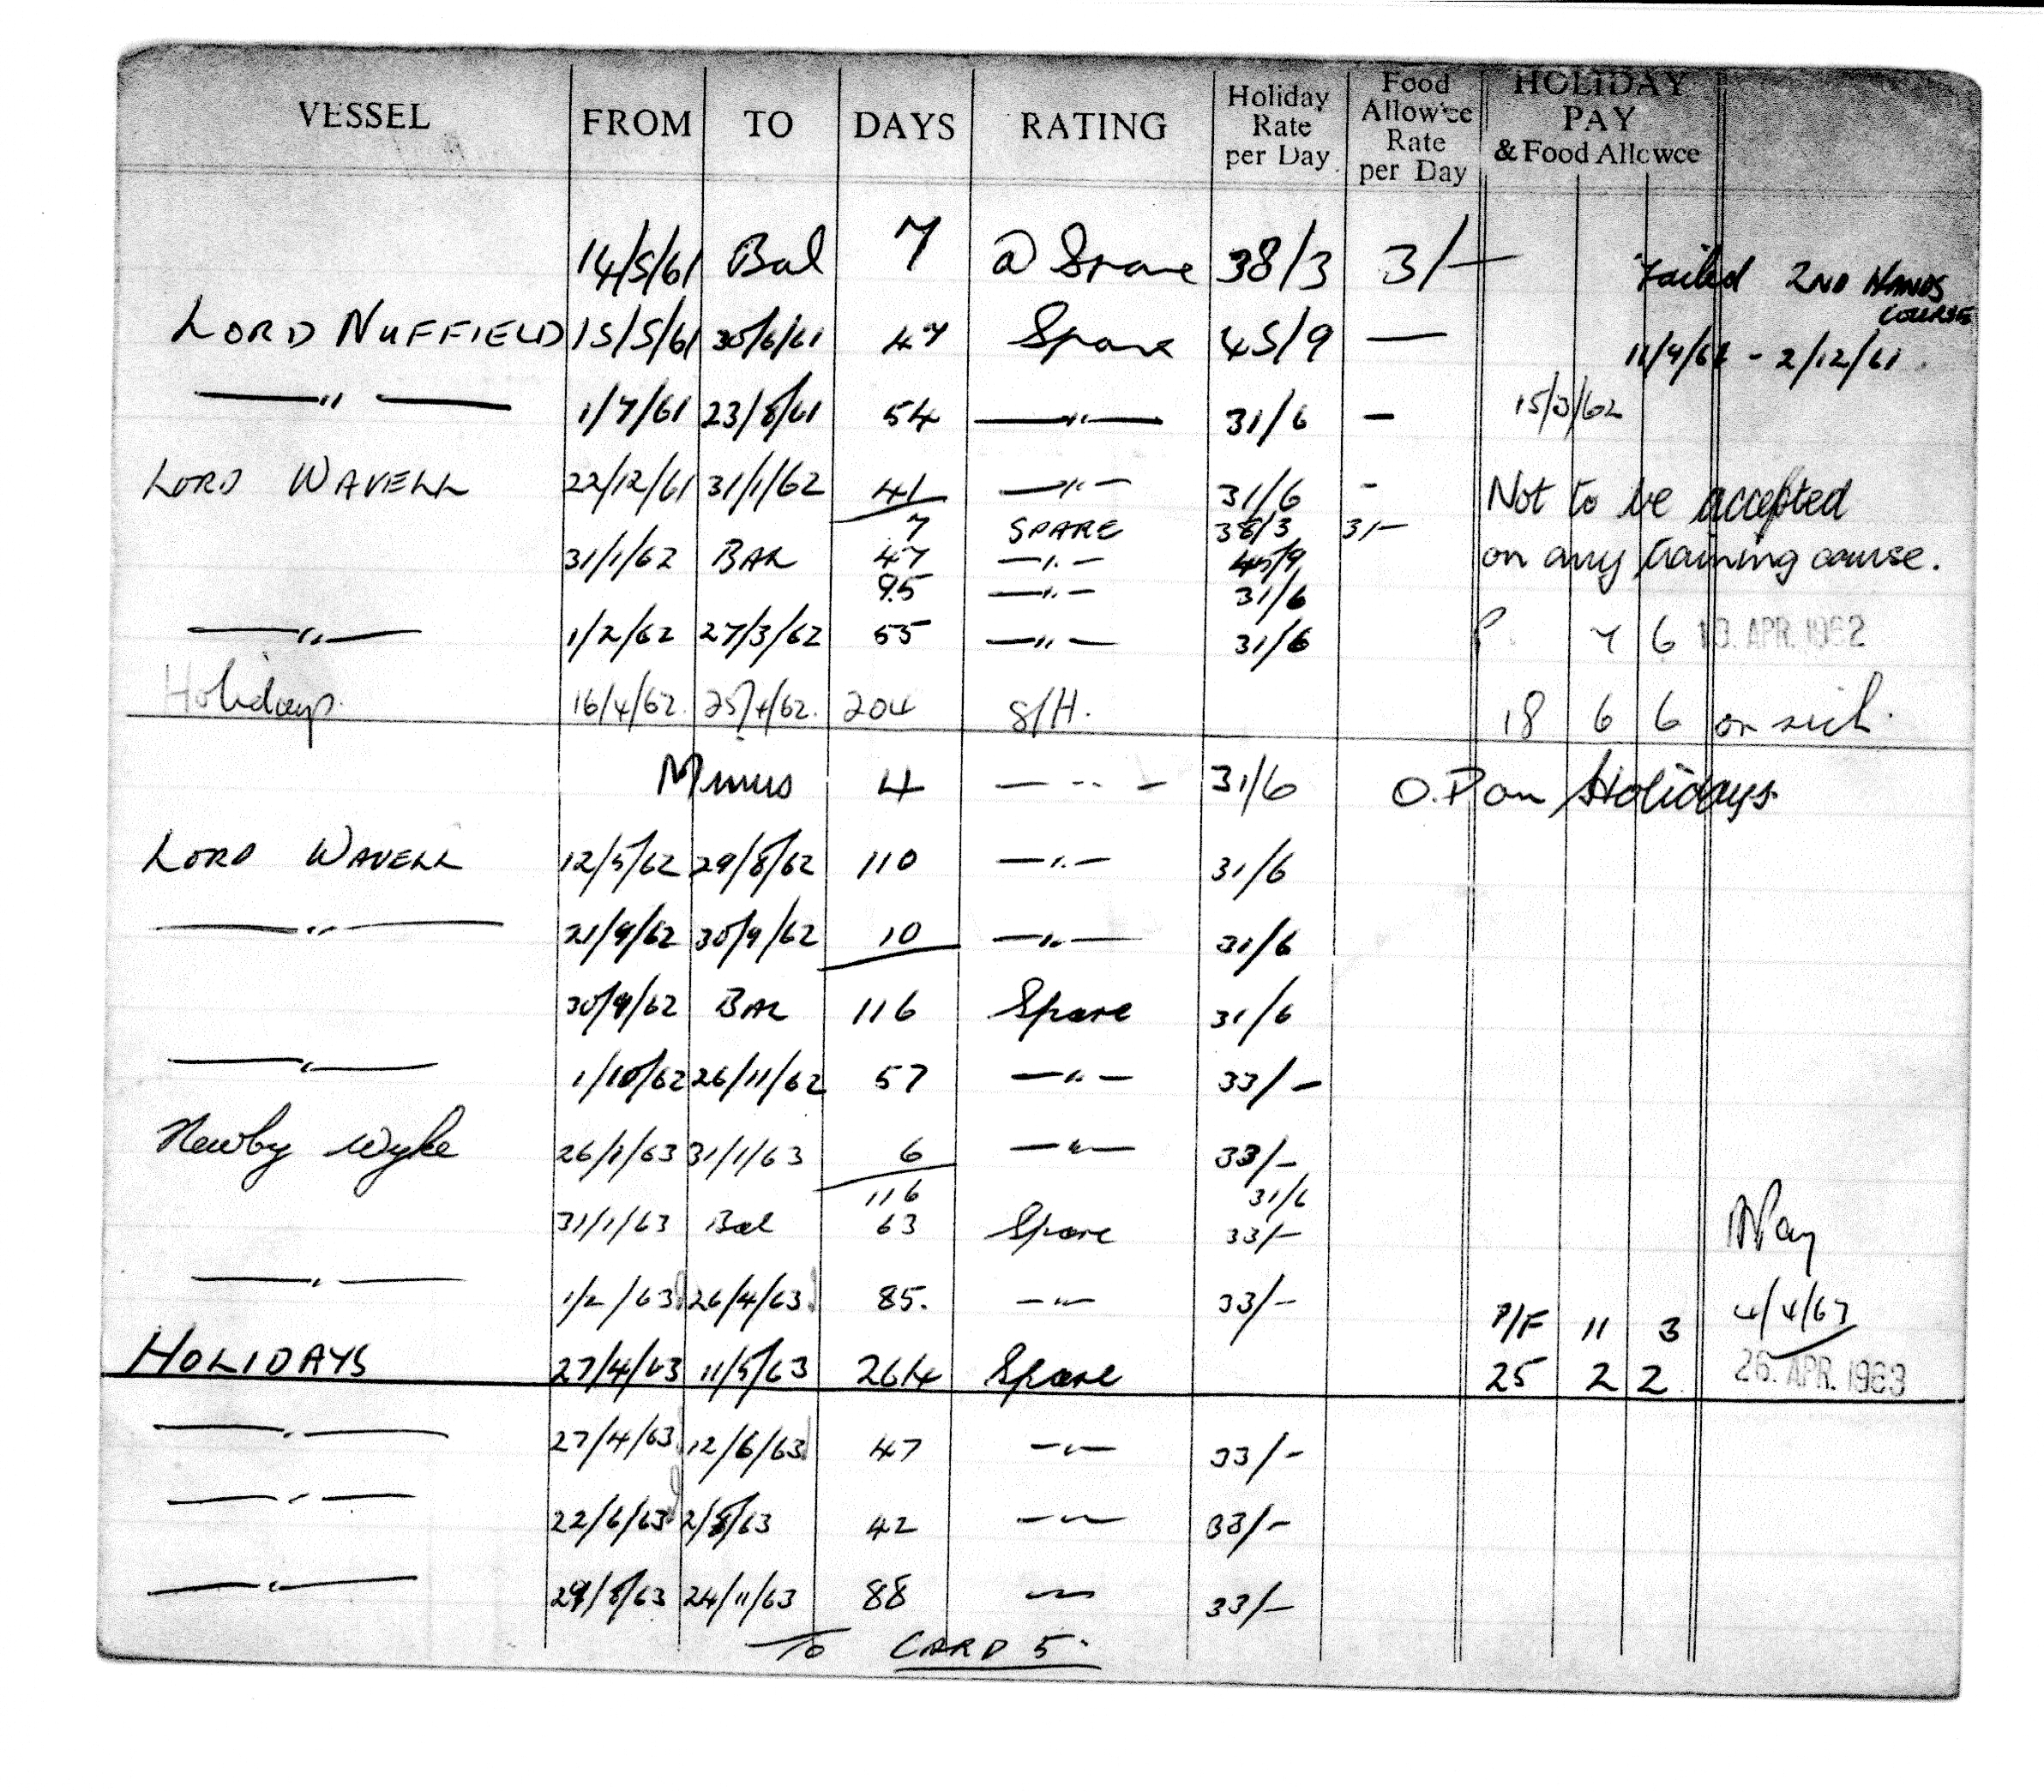 VESSEL FROM TO DAYS RATING Holiday Rate per Day Food Allow'ce Rate per Day HOLIDAY PAY & Food Allowce
14/5/61 Bal 7 @ Spare 38/3 3/- Failed 2ND HANDS COURSE
LORD NUFFIELD 15/5/61 30/6/61 47 Spare 45/9 — 11/9/61 - 2/12/61.
—"— 1/7/61 23/8/61 54 —"— 31/6 - 15/3/62
LORD WAVELL 22/12/61 31/1/62 41 —"— 31/6 - Not to be accepted
7 SPARE 38/3 3/-
31/1/62 BAL 47 —"— 45/9 on any training course.
95 —"— 31/6
—"— 1/2/62 27/3/62 55 —"— 31/6 P. 7 6 APR. 1962
Holidays. 16/4/62. 25/4/62. 204 S/H. 18 6 6 on sick.
Minus 4 —"— 31/6 O.P on Holidays.
LORD WAVELL 12/5/62 29/8/62 110 —"— 31/6
—"— 21/9/62 30/9/62 10 —"— 31/6
30/9/62 BAL 116 Spare 31/6
—"— 1/10/62 26/11/62 57 —"— 33/-
Newby Wyke 26/1/63 31/1/63 6 —"— 33/-
116 31/6
31/1/63 Bal 63 Spare 33/-
—"— 1/2/63 26/4/63 85. —"— 33/- P/F 11 3 4/4/63
HOLIDAYS 27/4/63 11/5/63 264 Spare 25 2 2 26. APR. 1963
—"— 27/4/63 12/6/63 47 —"— 33/-
—"— 22/6/63 2/8/63 42 —"— 33/-
—"— 29/8/63 24/11/63 88 —"— 33/-
To CARD 5.